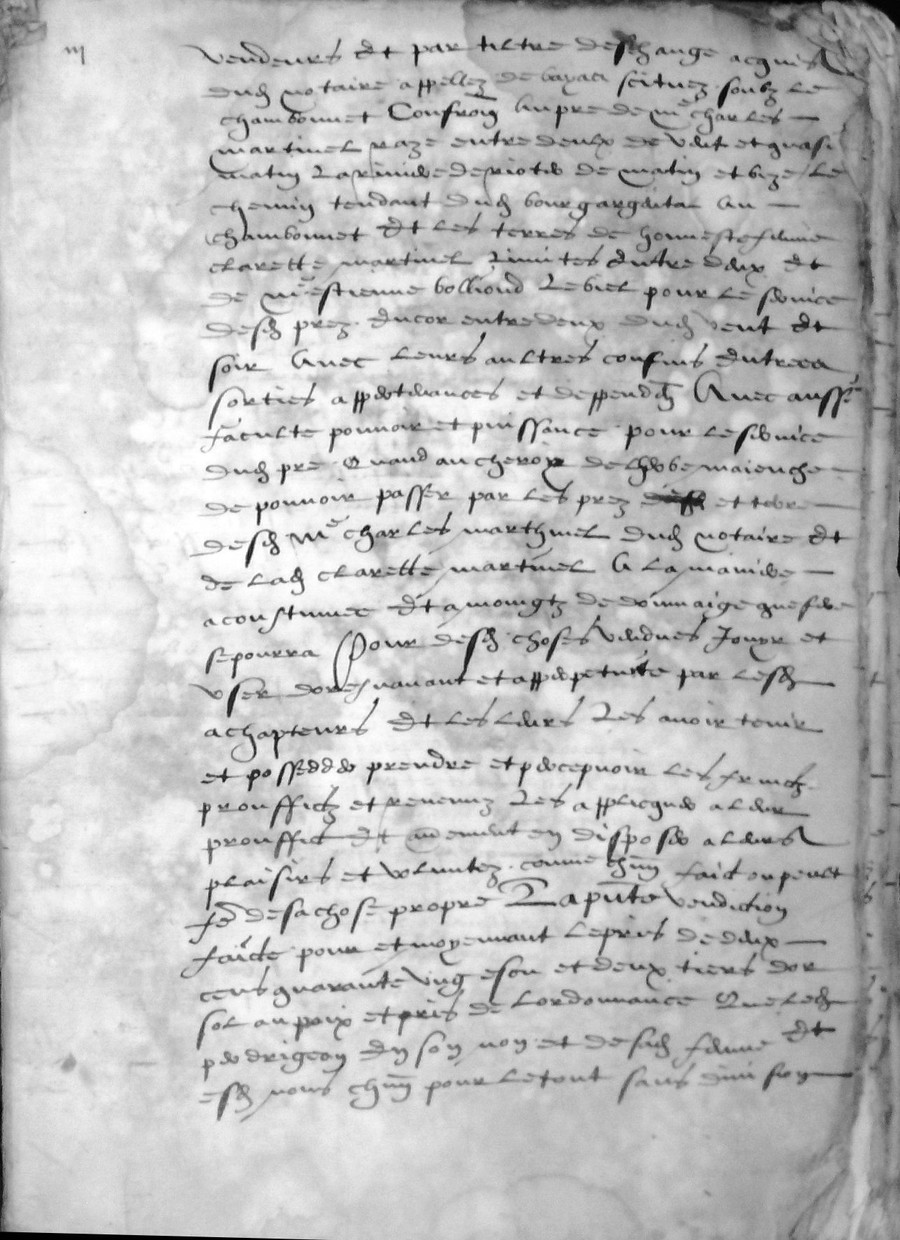 iij
vendeurs et par tiltre deschange acquis
dud notaire appellez de bayaci scituez soubz le
chambonnet Confron un pre de me charles
martinel raze entre deulx de vent et quasi
matin la riviere deriotord de matin et bize le
chemin tendant dud bourgargental au
chambonnet et les terres de honneste femme
clarette martinel limites entre deux et
de me estienne bolliond le biel pour le service
desd prez encor entre deux dud vent et
soir Avec leurs aultres confins entrees
sorties appertenances et deppend Avec aussi
faculte pouvoir et puissance pour le service
dud pre quand au cheroy de lherbe maienche
de pouvoir passer par les prez et terre
desd me charles marthinel dud notaire et
de lad clarette martinel A la maniere
acoustumee et a moingtz de dommaige que fere
se pourra Pour desd choses vendues Jouyr et
user doresnavant et a pperpetuite par lesd
achapteurs et les leurs Les avoir tenir
et posseder prendre et percepvoir les fruictz
prouffictz et revenuz Les applicquer a leur
prouffict et aultrement en disposer a leurs
plaisirs et voluntez comme chun faict ou peult
fe de sa chose propre La pnte vendiction
faicte pour et moyennant le pris de deux
cens quarante ung escu et deux tiers dor
sol au poix et pris de lordonnance Que led
perdrigeon en son nom et de sad femme et
esd noms chun pour le tout sans division